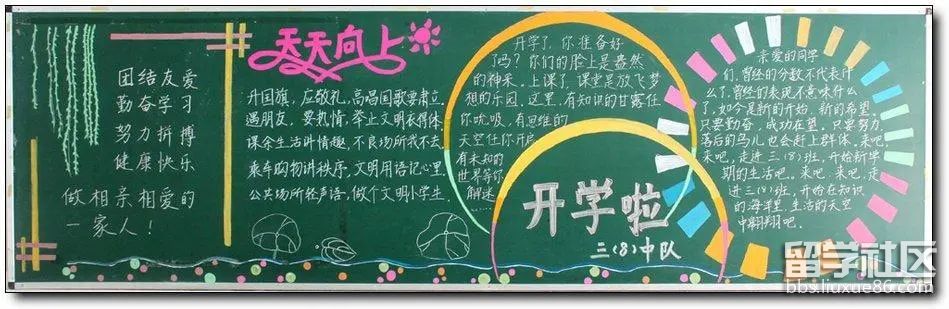 团结友爱
勤奋学习
努力拼搏
健康快乐
做相亲相爱的
一家人！
天天向上
升国旗，应敬礼，高唱国歌要肃立。
遇朋友，要热情，举止文明衣得体。
课余生活讲情趣，不良场所我不去。
乘车购物讲秩序，文明用语记心里。
公共场所轻声语，做个文明小学生。
开学了，你准备好
了吗？你们的脸上是盎然
的神采。上课了，课堂是放飞梦
想的乐园，这里，有知识的甘露任
你吮吸，有思维的
天空任你开启
有未知的
世界等你
解谜……
开学啦
三（8）中队
亲爱的同学
们，曾经的分数不代表什
么了，曾经的表现不意味什么
了，如今是新的开始，新的希望。
只要勤奋，成功在望。只要努力，
落后的鸟儿也会赶上群体。来吧，
来吧，走进三（8）班，开始新学
期的生活吧。来吧，来吧，走
进三（8）班，开始在知识
的海洋里，生活的天空
中翱翔吧。
留学社区
bbs.liuxue86.com